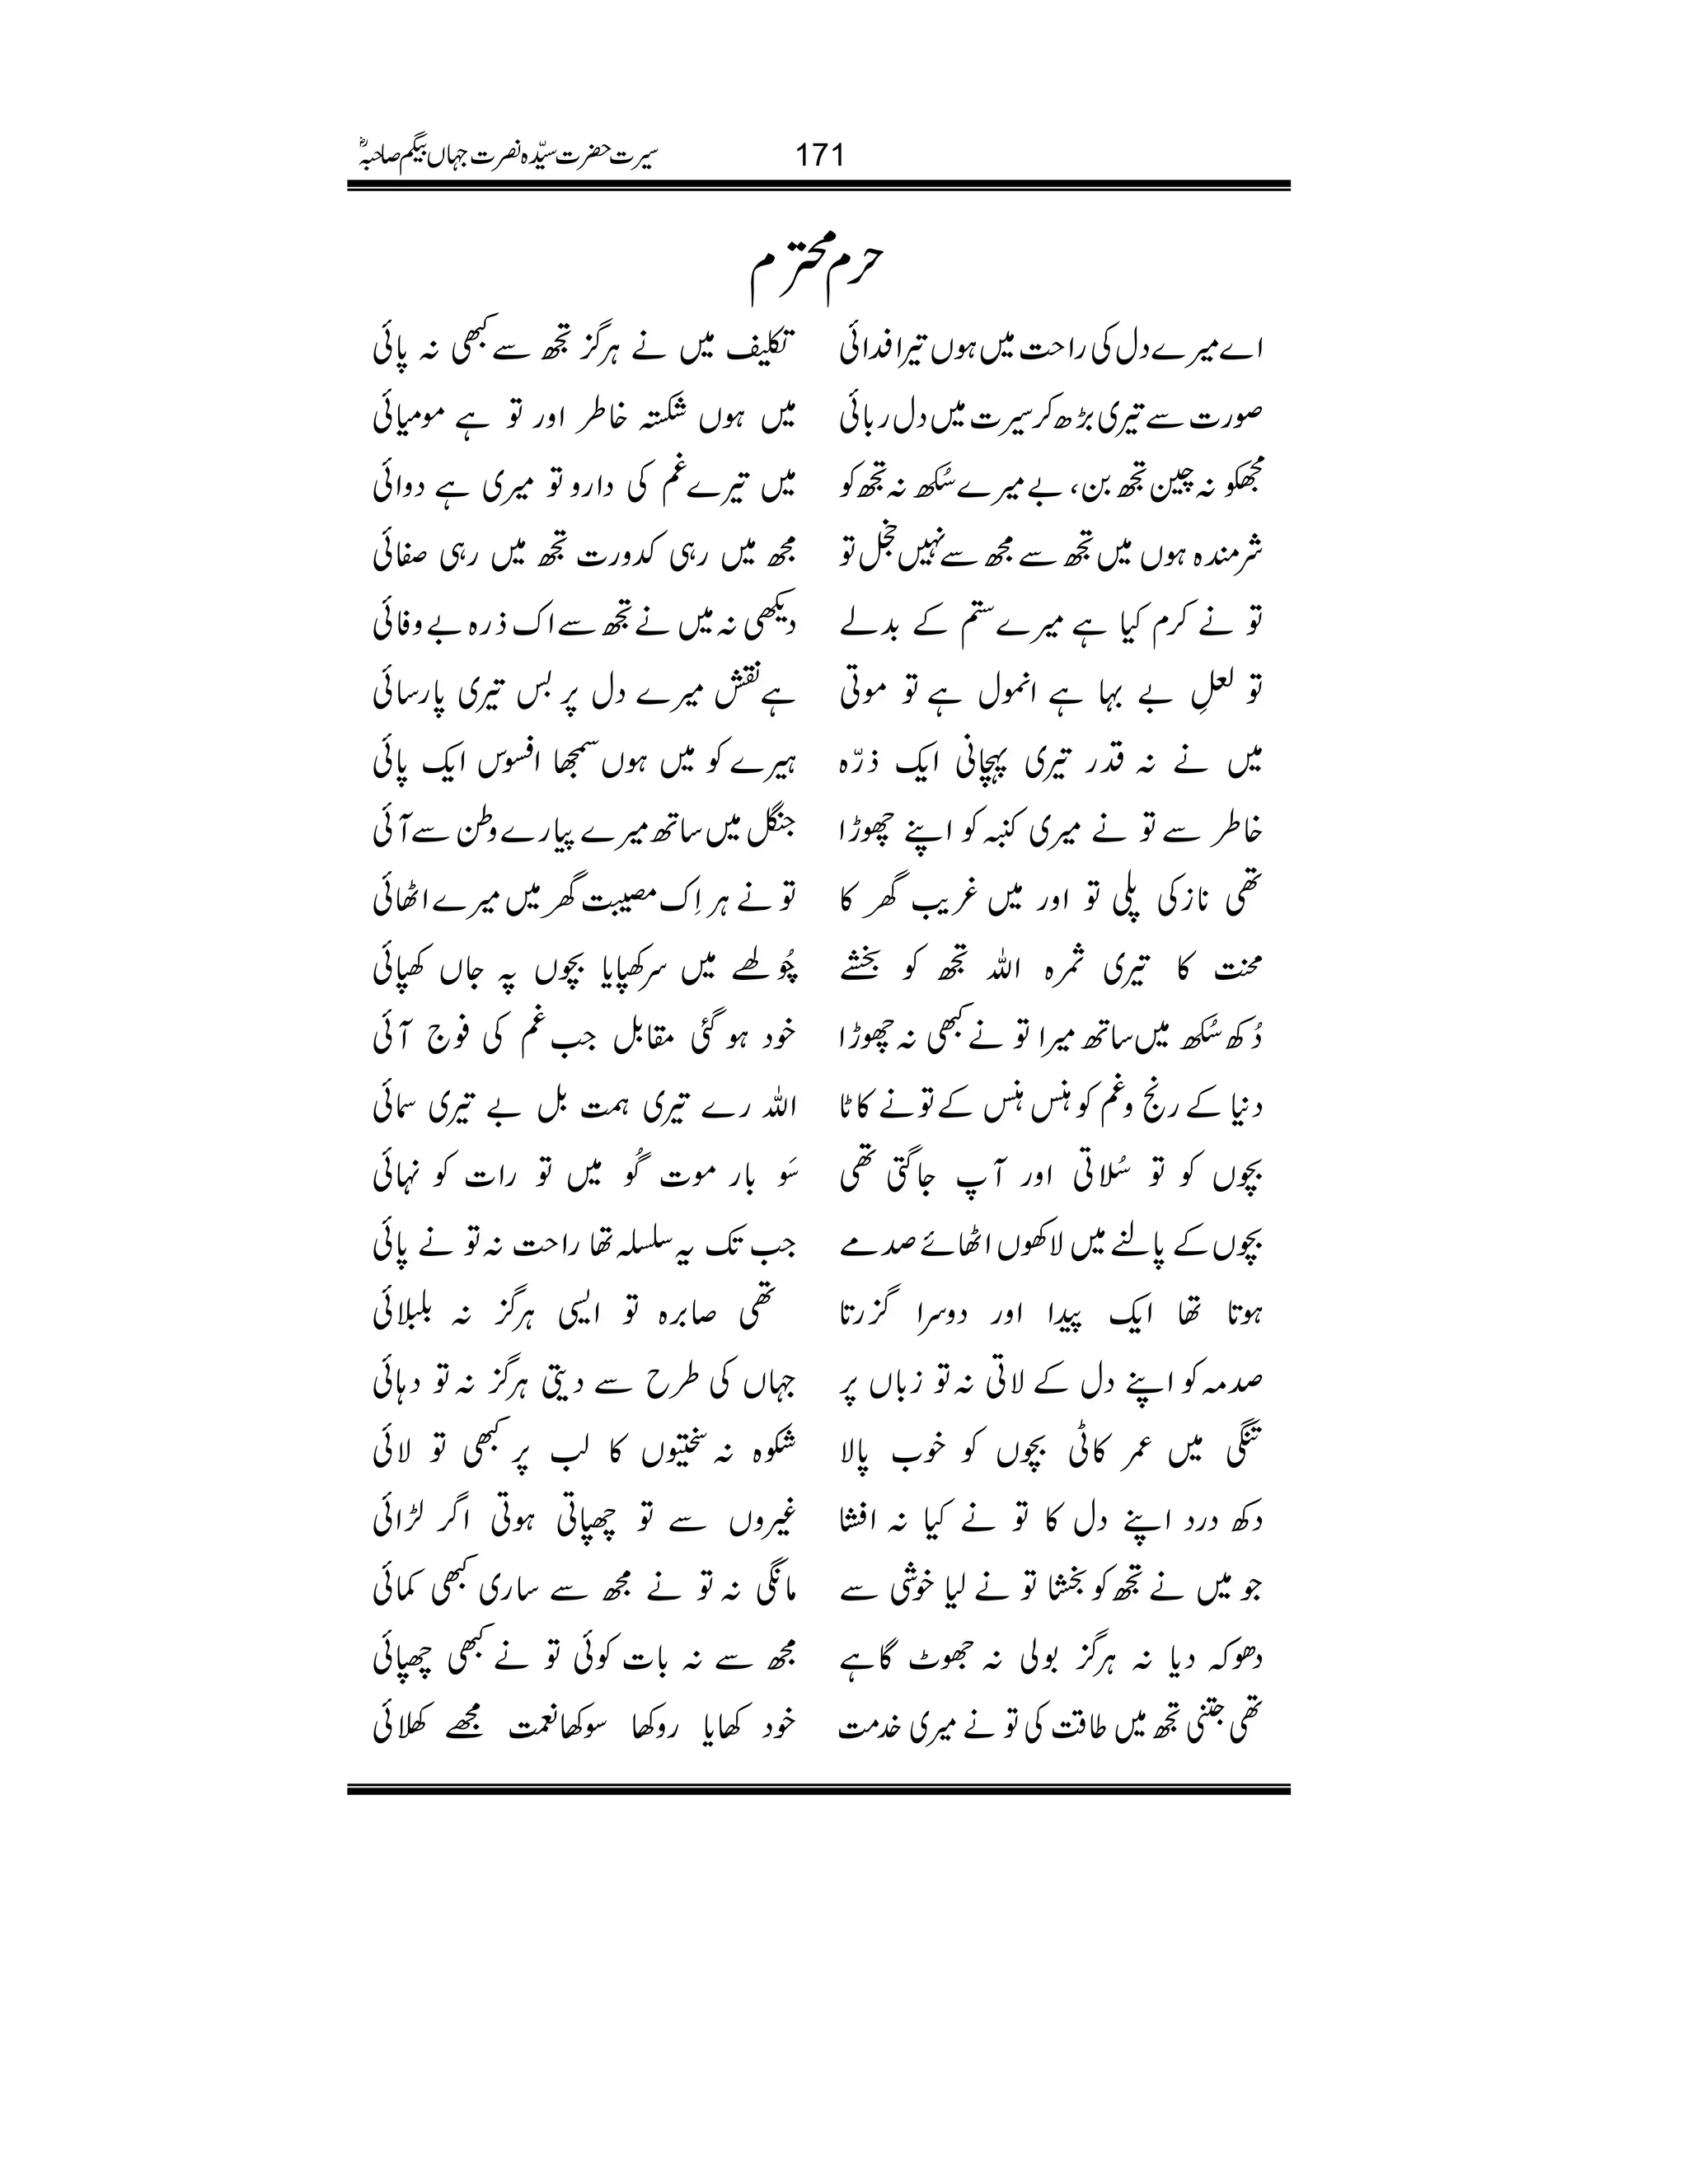 سیرت حضرت سیّدہ نصرت جہاں بیگم صاحبہؓ 171
حرم محترم
اے میرے دل کی راحت میں ہوں تیرا فدائی تکلیف میں نے ہرگز تجھ سے کبھی نہ پائی
صورت سے تیری بڑھ کر سیرت میں دل ربائی میں ہوں شکستہ خاطر اور تو ہے مومیائی
مجھکو نہ چین تجھ بن، بے میرے سُکھ نہ تجھ کو میں تیرے غم کی دارو تو میری ہے دوائی
شرمندہ ہوں میں تجھ سے مجھ سے نہیں خجل تو مجھ میں رہی کدورت تجھ میں رہی صفائی
تو نے کرم کیا ہے میرے ستم کے بدلے دیکھی نہ میں نے تجھ سے اک ذرہ بے وفائی
تو لعلِ بے بہا ہے انمول ہے تو موتی ہے نقش میرے دل پر بس تیری پارسائی
میں نے نہ قدر تیری پہچانی ایک ذرّہ ہیرے کو میں ہوں سمجھا افسوس ایک پائی
خاطر سے تو نے میری کنبہ کو اپنے چھوڑا جنگل میں ساتھ میرے پیارے وطن سے آئی
تھی ناز کی پلی تو اور میں غریب گھر کا تو نے ہر اِک مصیبت گھر میں میرے اٹھائی
محنت کا تیری ثمرہ اللہ تجھ کو بخشے چُولھے میں سر کھپایا بچوں پہ جاں کھپائی
دُکھ سُکھ میں ساتھ میرا تو نے کبھی نہ چھوڑا خود ہو گئی مقابل جب غم کی فوج آئی
دنیا کے رنج و غم کو ہنس ہنس کے تونے کاٹا اللہ رے تیری ہمت بل بے تیری سمائی
بچوں کو تو سُلاتی اور آپ جاگتی تھی سَو بار موت گُو میں تو رات کو نہائی
بچوں کے پالنے میں لاکھوں اٹھائے صدمے جب تک یہ سلسلہ تھا راحت نہ تو نے پائی
ہوتا تھا ایک پیدا اور دوسرا گزرتا تھی صابرہ تو ایسی ہرگز نہ بلبلائی
صدمہ کو اپنے دل کے لاتی نہ تو زباں پر جہاں کی طرح سے دیتی ہرگز نہ تو دہائی
تنگی میں عمر کاٹی بچوں کو خوب پالا شکوہ نہ سختیوں کا لب پر کبھی تو لائی
دکھ درد اپنے دل کا تو نے کیا نہ افشا غیروں سے تو چھپاتی ہوتی اگر لڑائی
جو میں نے تجھ کو بخشا تو نے لیا خوشی سے مانگی نہ تو نے مجھ سے ساری کبھی کمائی
دھوکہ دیا نہ ہرگز بولی نہ جھوٹ گاہے مجھ سے نہ بات کوئی تو نے کبھی چھپائی
تھی جتنی تجھ میں طاقت کی تو نے میری خدمت خود کھایا روکھا سوکھا نعمت مجھے کھلائی